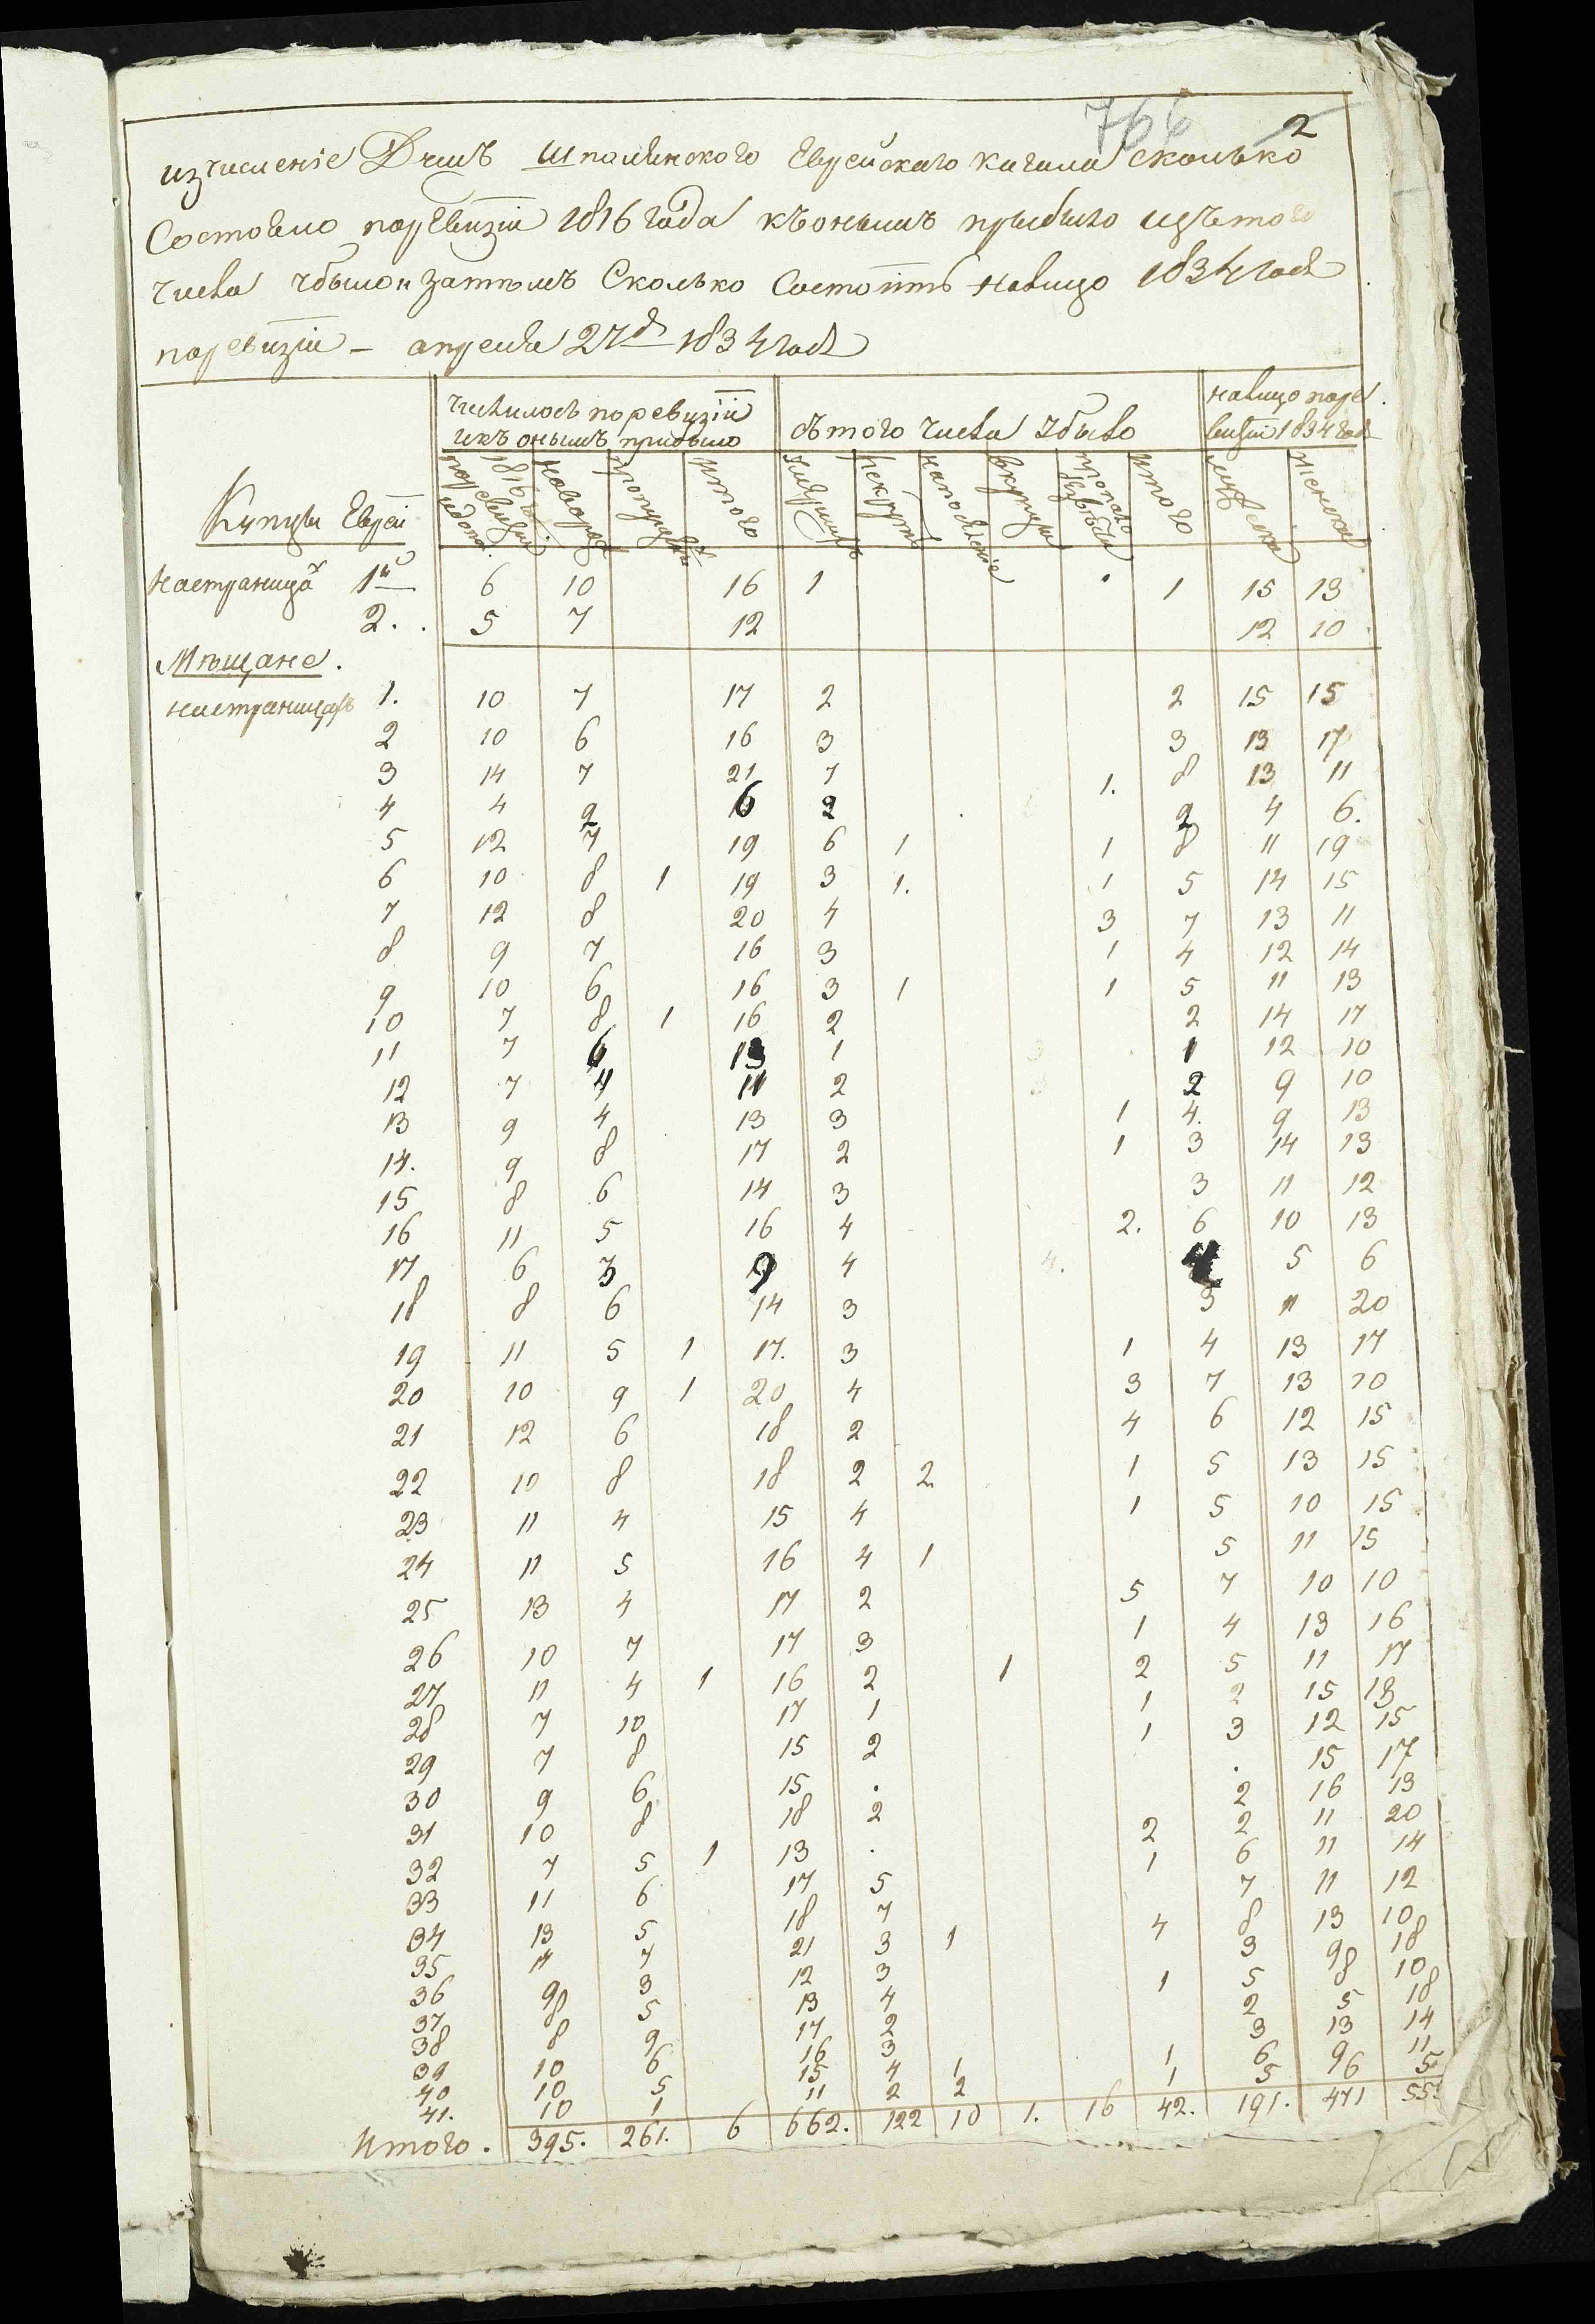 766 2
изчисленіе Душъ Шполянского Еврейскаго кагала сколько
Состояло поревизіи 1816 года къонымъ прибыло изътого
числа убыло и затѣмъ Сколько Состоитъ налицо 1834 года
поревизіи – апреля 27 д 1834 года
числилось поревизіи
икъ онымъ прибыло
съ того числа убыло
налицо поре
визіи 1834 года
Купцы Евреи
поревизіи 1816
новорож
пропущен
итого
умершихъ
рекрутъ
в купцы
пропало безвести
итого
мужеска
женска
Настраницѣ 1й 6 10 16 1 1 15 13
2. 5 7 12 12 10
Мѣщане.
настраницѣ 1. 10 7 17 2 2 15 15
2 10 6 16 3 3 13 17
3 14 7 21 7 1. 8 13 11
4 4 2 6 2 2 4 6.
5 12 7 19 6 1 1 8 11 19
6 10 8 1 19 3 1. 1 5 14 15
7 12 8 20 4 3 7 13 11
8 9 7 16 3 1 4 12 14
9 10 6 16 3 1 1 5 11 13
10 7 8 1 16 2 2 14 17
11 7 6 13 1 1 12 10
12 7 4 11 2 2 9 10
13 9 4 13 3 1 4. 9 13
14. 9 8 17 2 1 3 14 13
15 8 6 14 3 3 11 12
16 11 5 16 4 2. 6 10 13
17 6 3 9 4 4 5 6
18 8 6 14 3 3 11 20
19 11 5 1 17. 3 1 4 13 17
20 10 9 1 20 4 3 7 13 10
21 12 6 18 2 4 6 12 15
22 10 8 18 2 2 1 5 13 15
23 11 4 15 4 1 5 10 15
24 11 5 16 4 1 5 11 15
25 13 4 17 2 5 7 10 10
26 10 7 17 3 1 4 13 16
27 11 4 1 16 2 1 2 5 11 17
28 7 10 17 1 1 2 15 13
29 7 8 15 2 1 3 12 15
30 9 6 15 . . 15 17
31 10 8 18 2 2 16 13
32 7 5 1 13 . 2 2 11 20
33 11 6 17 5 1 6 11 14
34 13 5 18 7 7 11 12
35 14 7 21 3 1 4 8 13 10
36 9 3 12 3 3 9 18
37 8 5 13 4 1 5 8 10
38 8 9 17 2 2 5 18
39 10 6 16 3 3 13 14
40 10 5 15 4 1 1 6 9 11
41. 10 1 11 2 2 1 5 6 5
Итого. 395. 261. 6 662. 122 10 1. 16 42. 191. 471 55